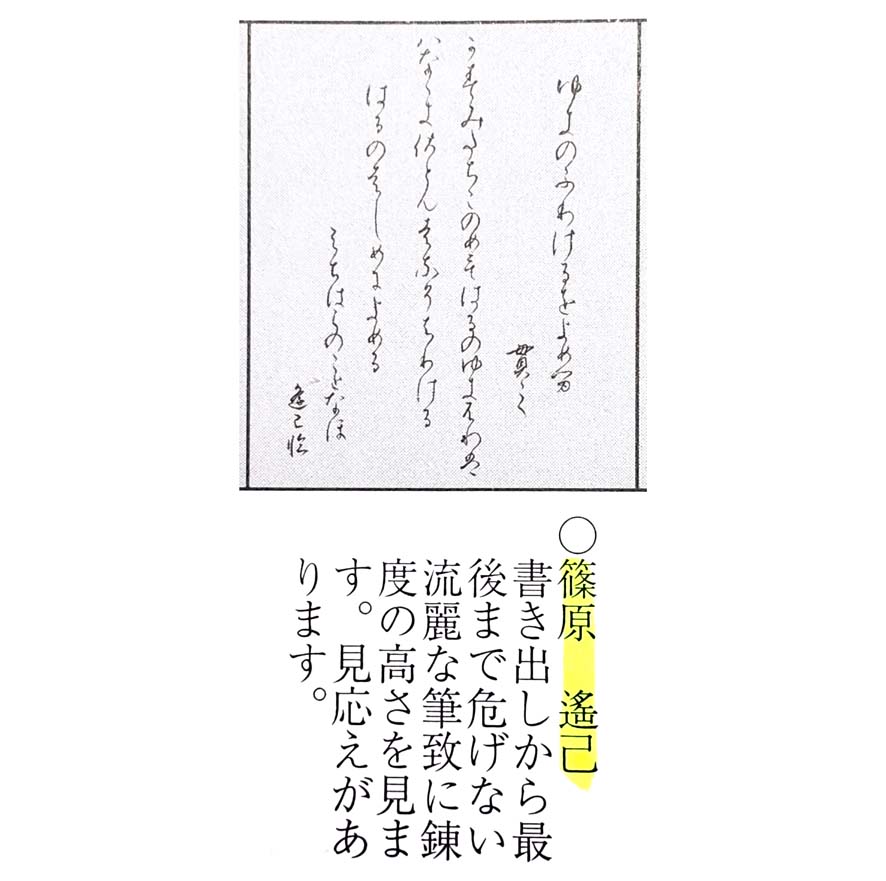 ゆきのふりけるをよめる
貫之
かすみたちこのめもはるのゆきふれば
はなゝきさともはなぞちりける
はるのはじめによめる
ふぢはらのことなほ
遙己臨
○篠原 遙己
書き出しから最
後まで危げない
流麗な筆致に錬
度の高さを見ま
す。見応えがあ
ります。